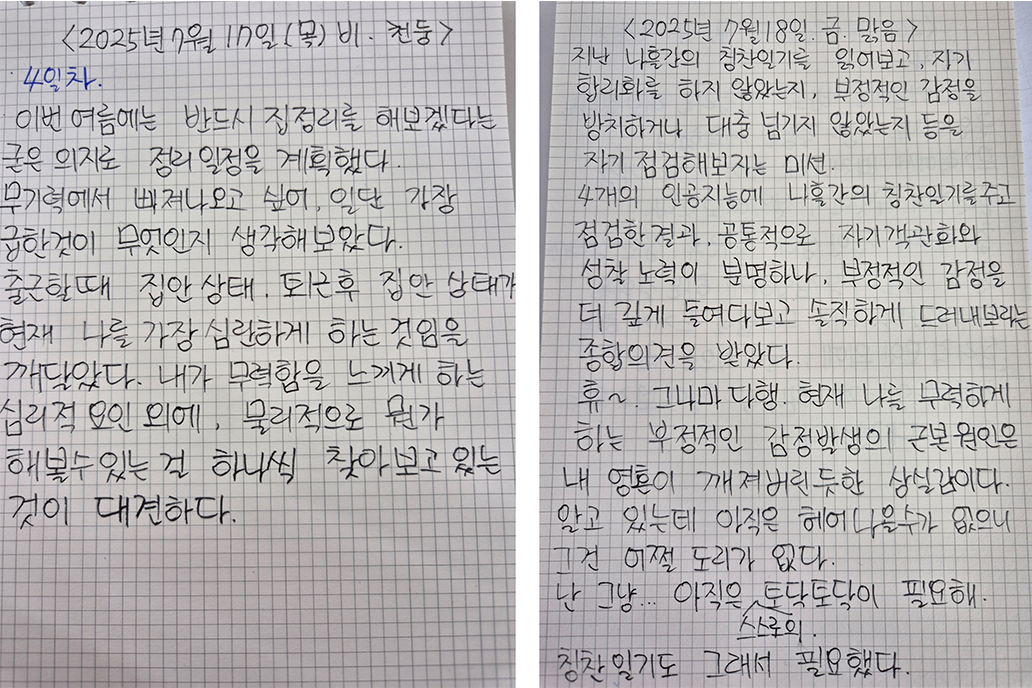 <2025년 7월 17일(목) 비. 천둥>
4일차.
이번 여름에는 반드시 집정리를 해보겠다는
굳은 의지로 정리일정을 계획했다.
무기력에서 빠져나오고 싶어, 일단 가장
급한것이 무엇인지 생각해보았다.
출근할때 집안상태, 퇴근후 집안 상태가
현재 나를 가장 심란하게 하는 것임을
깨달았다. 내가 무력함을 느끼게 하는
심리적 요인 외에, 물리적으로 뭔가
해볼수있는 걸 하나씩 찾아보고 있는
것이 대견하다.
<2025년 7월 18일. 금. 맑음>
지난 나흘간의 칭찬일기를 읽어보고, 자기
합리화를 하지 않았는지, 부정적인 감정을
방치하거나 대충 넘기지 않았는지 등을
자기 점검해보자는 미션.
4개의 인공지능에 나흘간의 칭찬일기를주고
점검한결과, 공통적으로 자기객관화와
성찰 노력이 분명하나, 부정적인 감정을
더 깊게 들여다보고 솔직하게 드러내보라는
종합의견을 받았다.
휴~. 그나마 다행. 현재 나를 무력하게
하는 부정적인 감정발생의 근본원인은
내 영혼이 깨져버린듯한 상실감이다.
알고 있는데 아직은 헤어나올수가 없으니
그건 어쩔 도리가 없다.
난 그냥... 아직은 토닥토닥이 필요해.
스스로의.
칭찬일기도 그래서 필요했다.